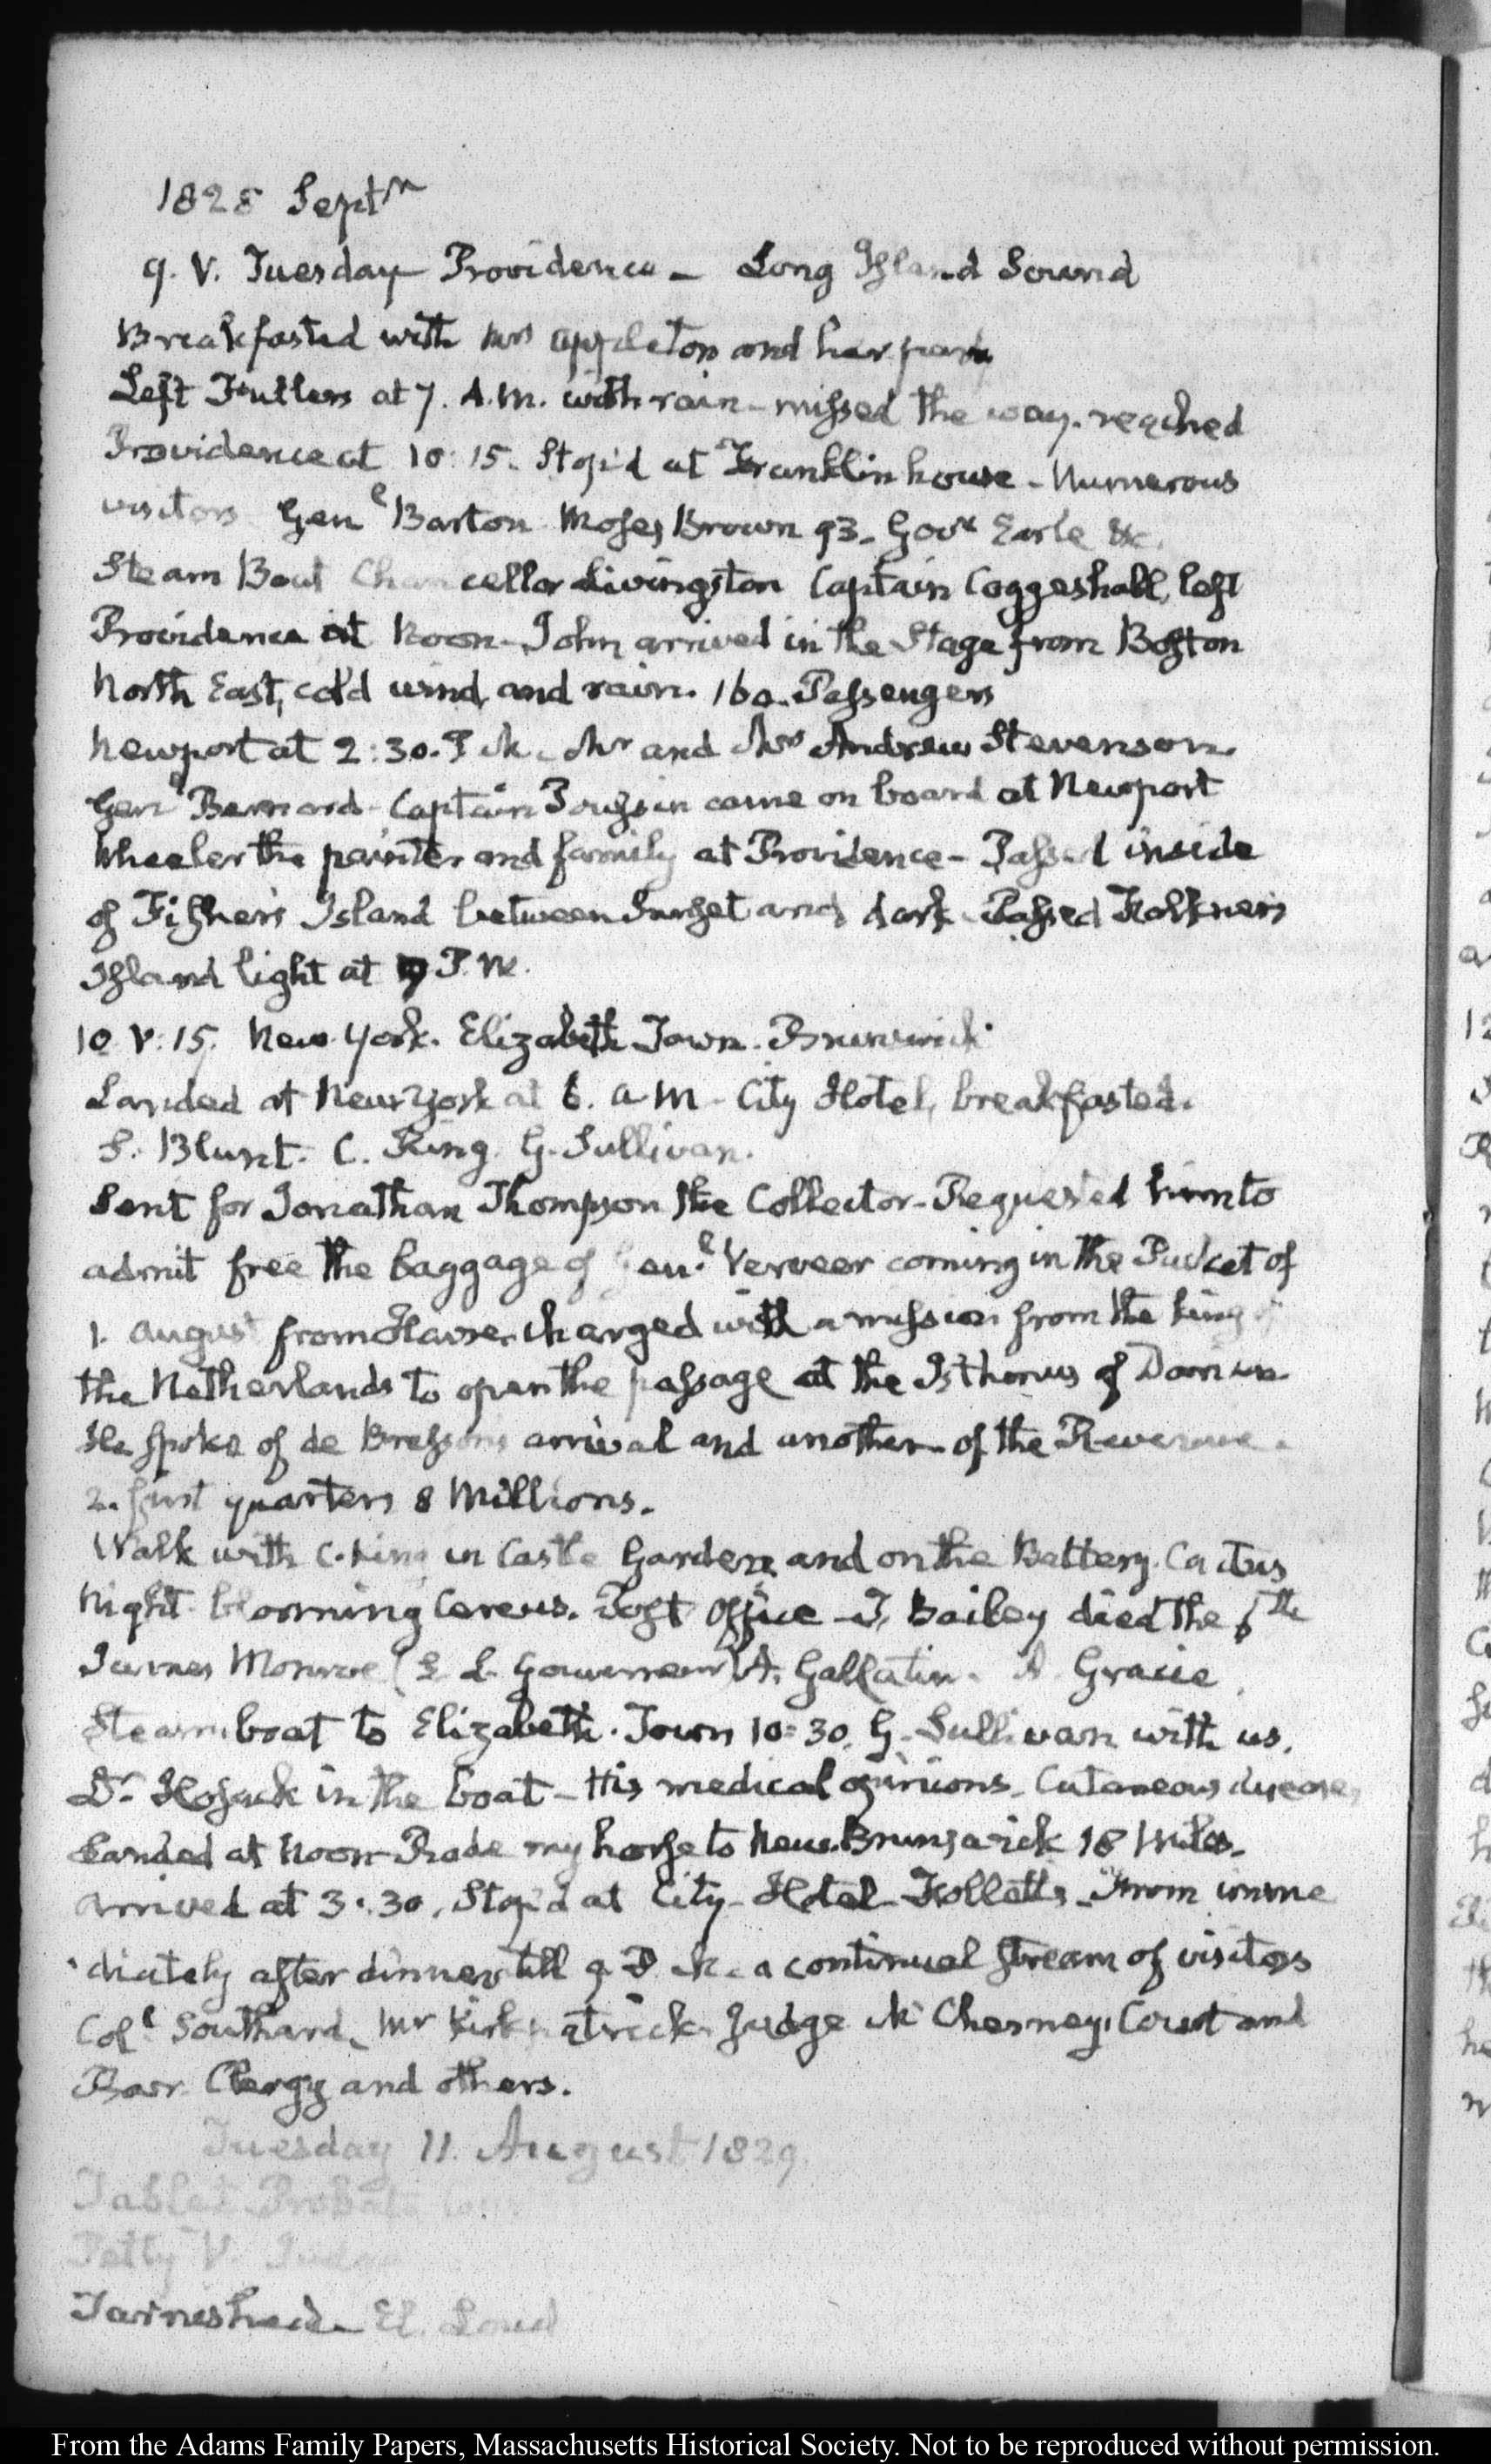 1828 Septr
9. V. Tuesday Providence – Long Island Sound
Breakfasted with Mrs Appleton and her party
Left Fullers at 7. A.M. with rain – missed the way. reached
Providence at 10:15. Stop'd at Franklin house – Numerous
visitors Genl Barton Moses Brown 93 – Govr Earle &c.
Steam Boat Chancellor Livingston Captain Coggeshall, left
Providence at Noon – John arrived in the Stage from Boston
North East, cold wind, and rain. 160. Passengers
Newport at 2:30. P.M. Mr and Mrs Andrew Stevenson.
Genl Bernard – Captain Poussin came on board at Newport
Wheeler the painter and family at Providence – Passed inside
of Fisher's Island between Sunset and dark – Passed Falkner's
Island light at 9 P.M.
10. V:15. New-York. Elizabeth Town. Brunswick.
Landed at New York at 6. A.M – City Hotel, breakfasted.
S. Blunt. C. King. G. Sullivan.
Sent for Jonathan Thompson the Collector – Requested him to
admit free the baggage of Genl. Verveer coming in the Packet of
1. August from Havre, charged with a mission from the king of
the Netherlands to open the passage at the Isthmus of Darien.
He spoke of de Bresson's arrival and another – of the Revenue.
2. first quarters 8 Millions.
Walk with C. King in Castle Garden, and on the Battery. Cactus
Night blooming Cereus. Post Office – T. Bailey died the 6th
James Monroe (S. L. Gouverneur) A. Gallatin. A. Gracie.
Steam-boat to Elizabeth-Town 10:30. G. Sullivan with us.
Dr Hosack in the boat – His medical opinions. Cutaneous disease,
Landed at Noon – Rode my horse to New-Brunswick 18 Miles.
Arrived at 3:30. Stop'd at City-Hotel – Follett's – From imme
diately after dinner till 9 P.M. a continual stream of visitors
Coll Southard, Mr Kirkpatrick, Judge McChesney, Court and
Bar. Clergy and others.
Tuesday 11. August 1829.
Tablet Probate
Petty V.
Tarnished – El. Loud